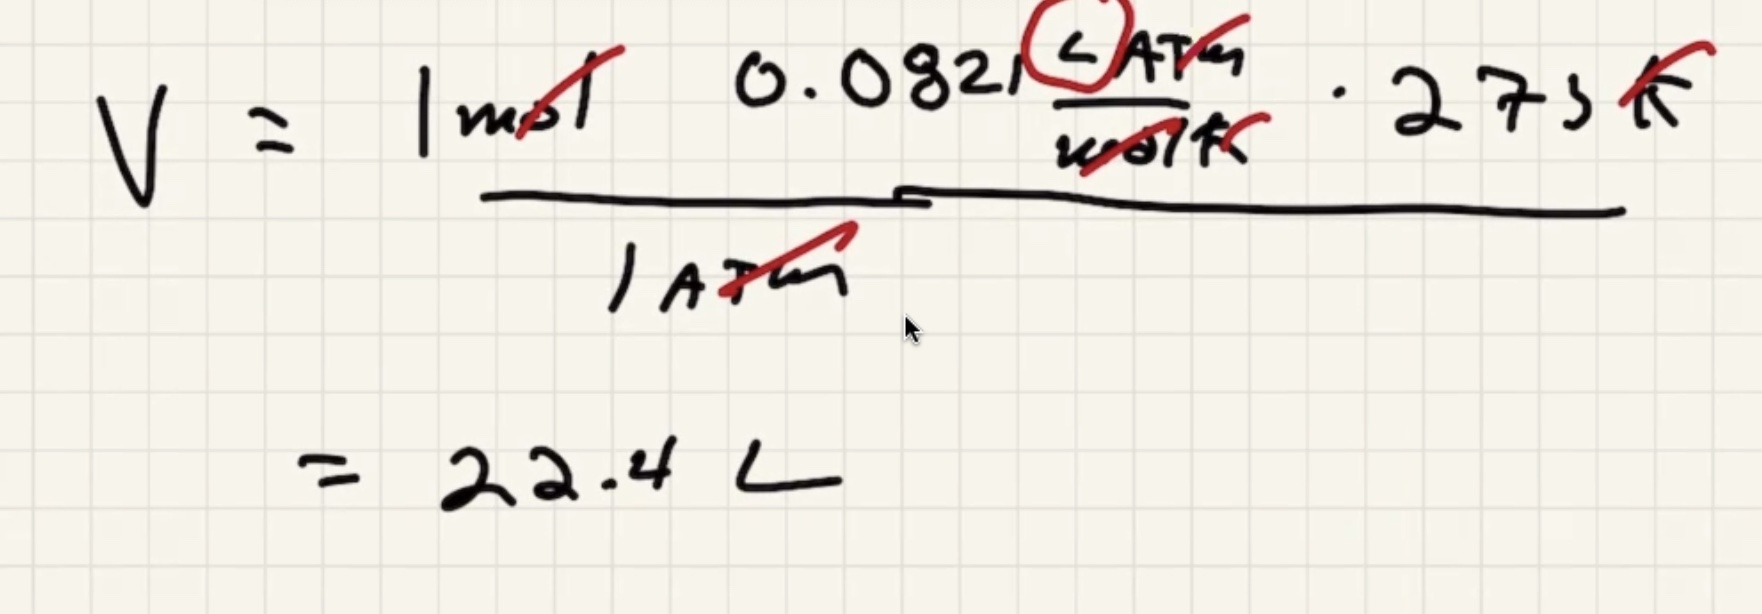 V = 1 mol 0.0821 L ATM / mol K · 273 K
1 ATM
= 22.4 L